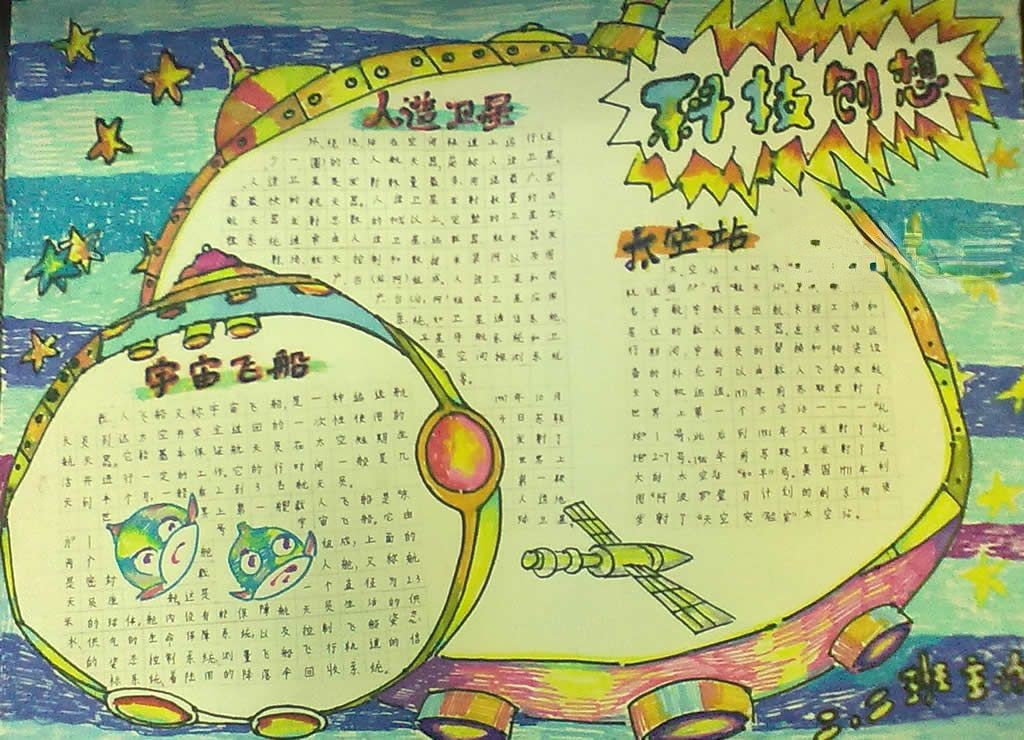 科技创想
人造卫星
环绕地球在空间轨道上运行(至
少一圈)的无人航天器,简称人造卫星。
人造卫星是发射数量最多,用途最广,发
展最快的航天器。人造卫星发射数量约占
航天器发射总数的90%以上。完整的卫星工
程系统通常由人造卫星
产台(站)网组成。人造卫星和用
户台(站)网组成卫星应用
系统,如卫星通信系统,
卫星导航系统和卫
星空间探测系统
等。
1957年10月
4日苏联
发射了
世界上
第一颗
人造地
球卫星
太空站
太空站又称为
名宇航员
行期间,宇航员的替换和物资设
备的补充可以由载人飞船或航
天飞机运送,1971年前苏联发射了
世界上第一个太空站———“礼
炮”1号,此后到1981年又发射了“礼
炮”2-7号。1986年前苏联又发射了更
大的太空站“和平”号。美国1973年利
用“阿波罗”登月计划的剩余物资
发射了“天空实验室”太空站。
宇宙飞船
载人飞船又称宇宙飞船,是一种运送航
天员到达太空并安全返回的一次性使用的
航天器。它能基本保证航天员在太空短期生
活并进行一定的工作。它的行时间一般是几
天到半个月,一般乘2到3名航天员。
世界上第一艘载人飞船是“东
方”1号宇宙飞船。它由
两个舱组成,上面的
是密封载人舱,又称航
天员座舱,这是一个直径为2.3
米的球体。舱内设有能保障航天员生活的供
水、供气的生命保障系统,以及控制飞船姿态
的姿态控制系统,测量飞船飞行轨道的信
标系统,着陆用的降落伞回收系统。
8.8班